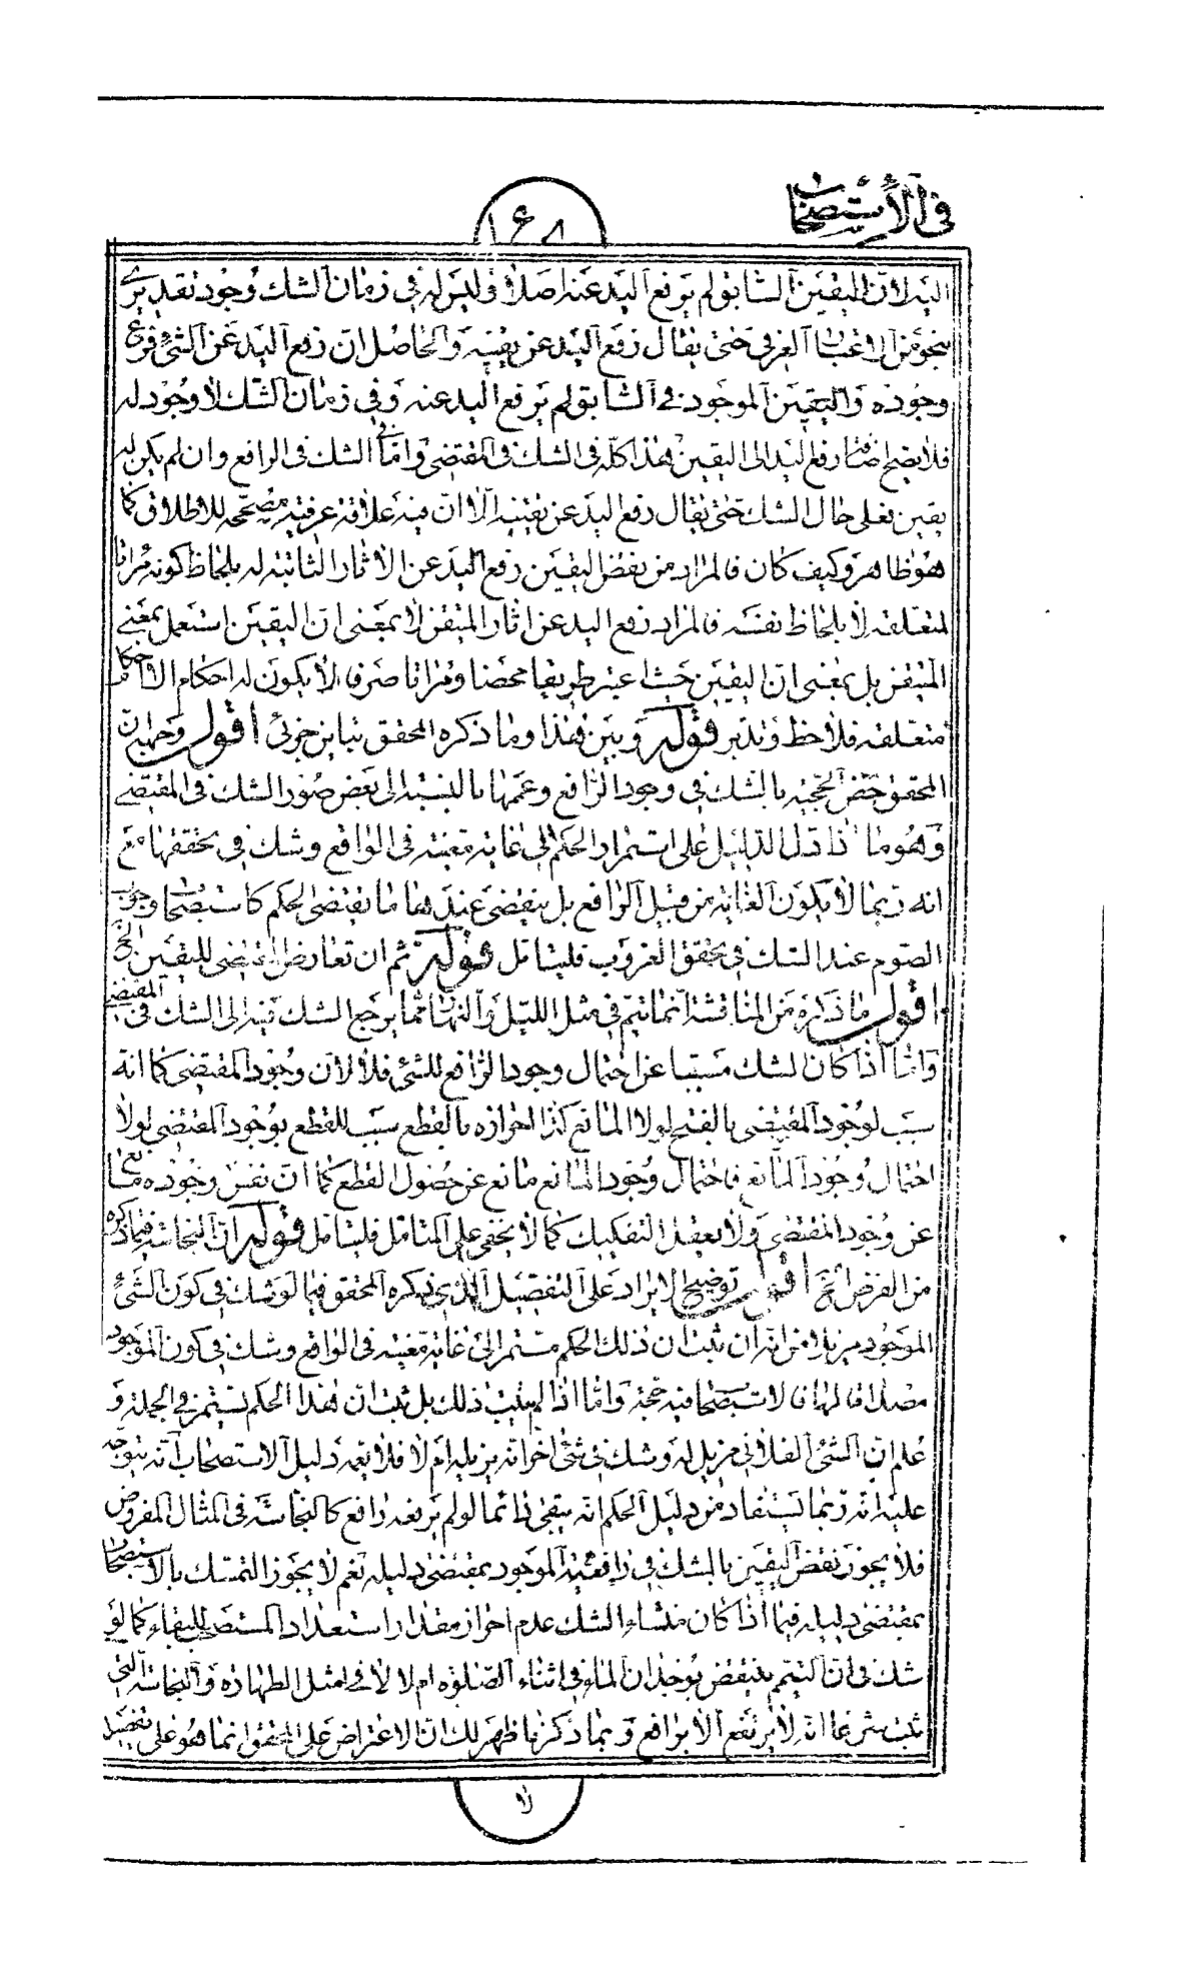 في الاستصحاب
١۶٨
اليه لان اليقين السابق لم يرفع اليد عنه اصلا وليس له في زمان الشك وجود تقديري
بنحو من الاعتبار العرفي حتى يقال رفع اليد عن يقينه والحاصل ان رفع اليد عن الشئ فرع
وجوده واليقين الموجود في السابق لم يرفع اليد عنه وفي زمان الشك لا وجود له
فلا يصح اضافة رفع اليد الى اليقين هذا كله في الشك في المقتضى واما في الشك في الرافع وان لم يكن له
يقين فعلي حال الشك حتى يقال رفع اليد عن يقينه الا ان فيه علاقة عرفية مصححه للاطلاق كما
هو ظاهر وكيف كان فالمراد من نقض اليقين رفع اليد عن الاثار الثابتة له بلحاظ كونه مراتا
لمتعلقه لا بلحاظ نفسه فالمراد رفع اليد عن اثار المتيقن لا بمعنى ان اليقين استعمل بمعنى
المتيقن بل بمعنى ان اليقين حيث اعتبر طريقا محضا ومراتا صرفا لا يكون له احكام الا احكام
متعلقه فلاحظ وتدبر قوله وبين هذا وما ذكره المحقق تباين جزئي اقول وجهه ان
المحقق خص الحجية بالشك في وجود الرافع وعممها بالنسبة الى بعض صور الشك في المقتضى
وهو ما اذا دل الدليل على استمرار الحكم الى غاية معينة في الواقع وشك في تحققها مع
انه ربما لا يكون الغاية من قبيل الرافع بل ينقضي عندها ما يقتضي الحكم كاستصحاب وجوب
الصوم عند الشك في تحقق الغروب فليتامل قوله ثم ان تعارض المقتضى لليقين الخ
اقول ما ذكره من المناقشة انما تتم في مثل الليل والنهار مما يرجع الشك فيه الى الشك في المقتضى
واما اذا كان الشك مسببا عن احتمال وجود الرافع للشئ فلا لان وجود المقتضى كما انه
سبب لوجود المقتضى بالفتح لولا المانع كذا احرازه بالقطع سبب للقطع بوجود المقتضى لولا
احتمال وجود المانع فاحتمال وجود المانع مانع عن حصول القطع كما ان نفس وجوده مانع
عن وجود المقتضى ولا يعقل التفكيك كما لا يخفى على المتامل فليتامل قوله ان النجاسة فيما ذكره
من الفرض الخ اقول توضيح الايراد على التفصيل الذي ذكره المحقق فيما لو شك في كون الشئ
الموجود مزيلا من انه ان ثبت ان ذلك الحكم مستمر الى غاية معينة في الواقع وشك في كون الموجود
مصداقا لها فالاستصحاب فيه حجة واما اذا لم يثبت ذلك بل ثبت ان هذا الحكم مستمر في الجملة و
علم ان الشئ الفلاني مزيل له وشك في شئ اخر انه يزيله ام لا فلا يعمه دليل الاستصحاب انه يتوجه
عليه انه ربما يستفاد من دليل الحكم انه يبقى دائما لو لم يرفعه رافع كالنجاسة في المثال المفروض
فلا يجوز نقض اليقين بالشك في رافعية الموجود بمقتضى دليله نعم لا يجوز التمسك بالاستصحاب
بمقتضى دليله فيما اذا كان منشاء الشك عدم احراز مقدار استعداد المستصحب للبقاء كما لو
شك في ان التيمم ينتقض بوجدان الماء في اثناء الصلوة ام لا لا في مثل الطهارة والنجاسة التي
ثبت شرعا انه لا يرتفع الا برافع وبما ذكرنا ظهر لك ان الاعتراض على المحقق انما هو على تفصيل
لا